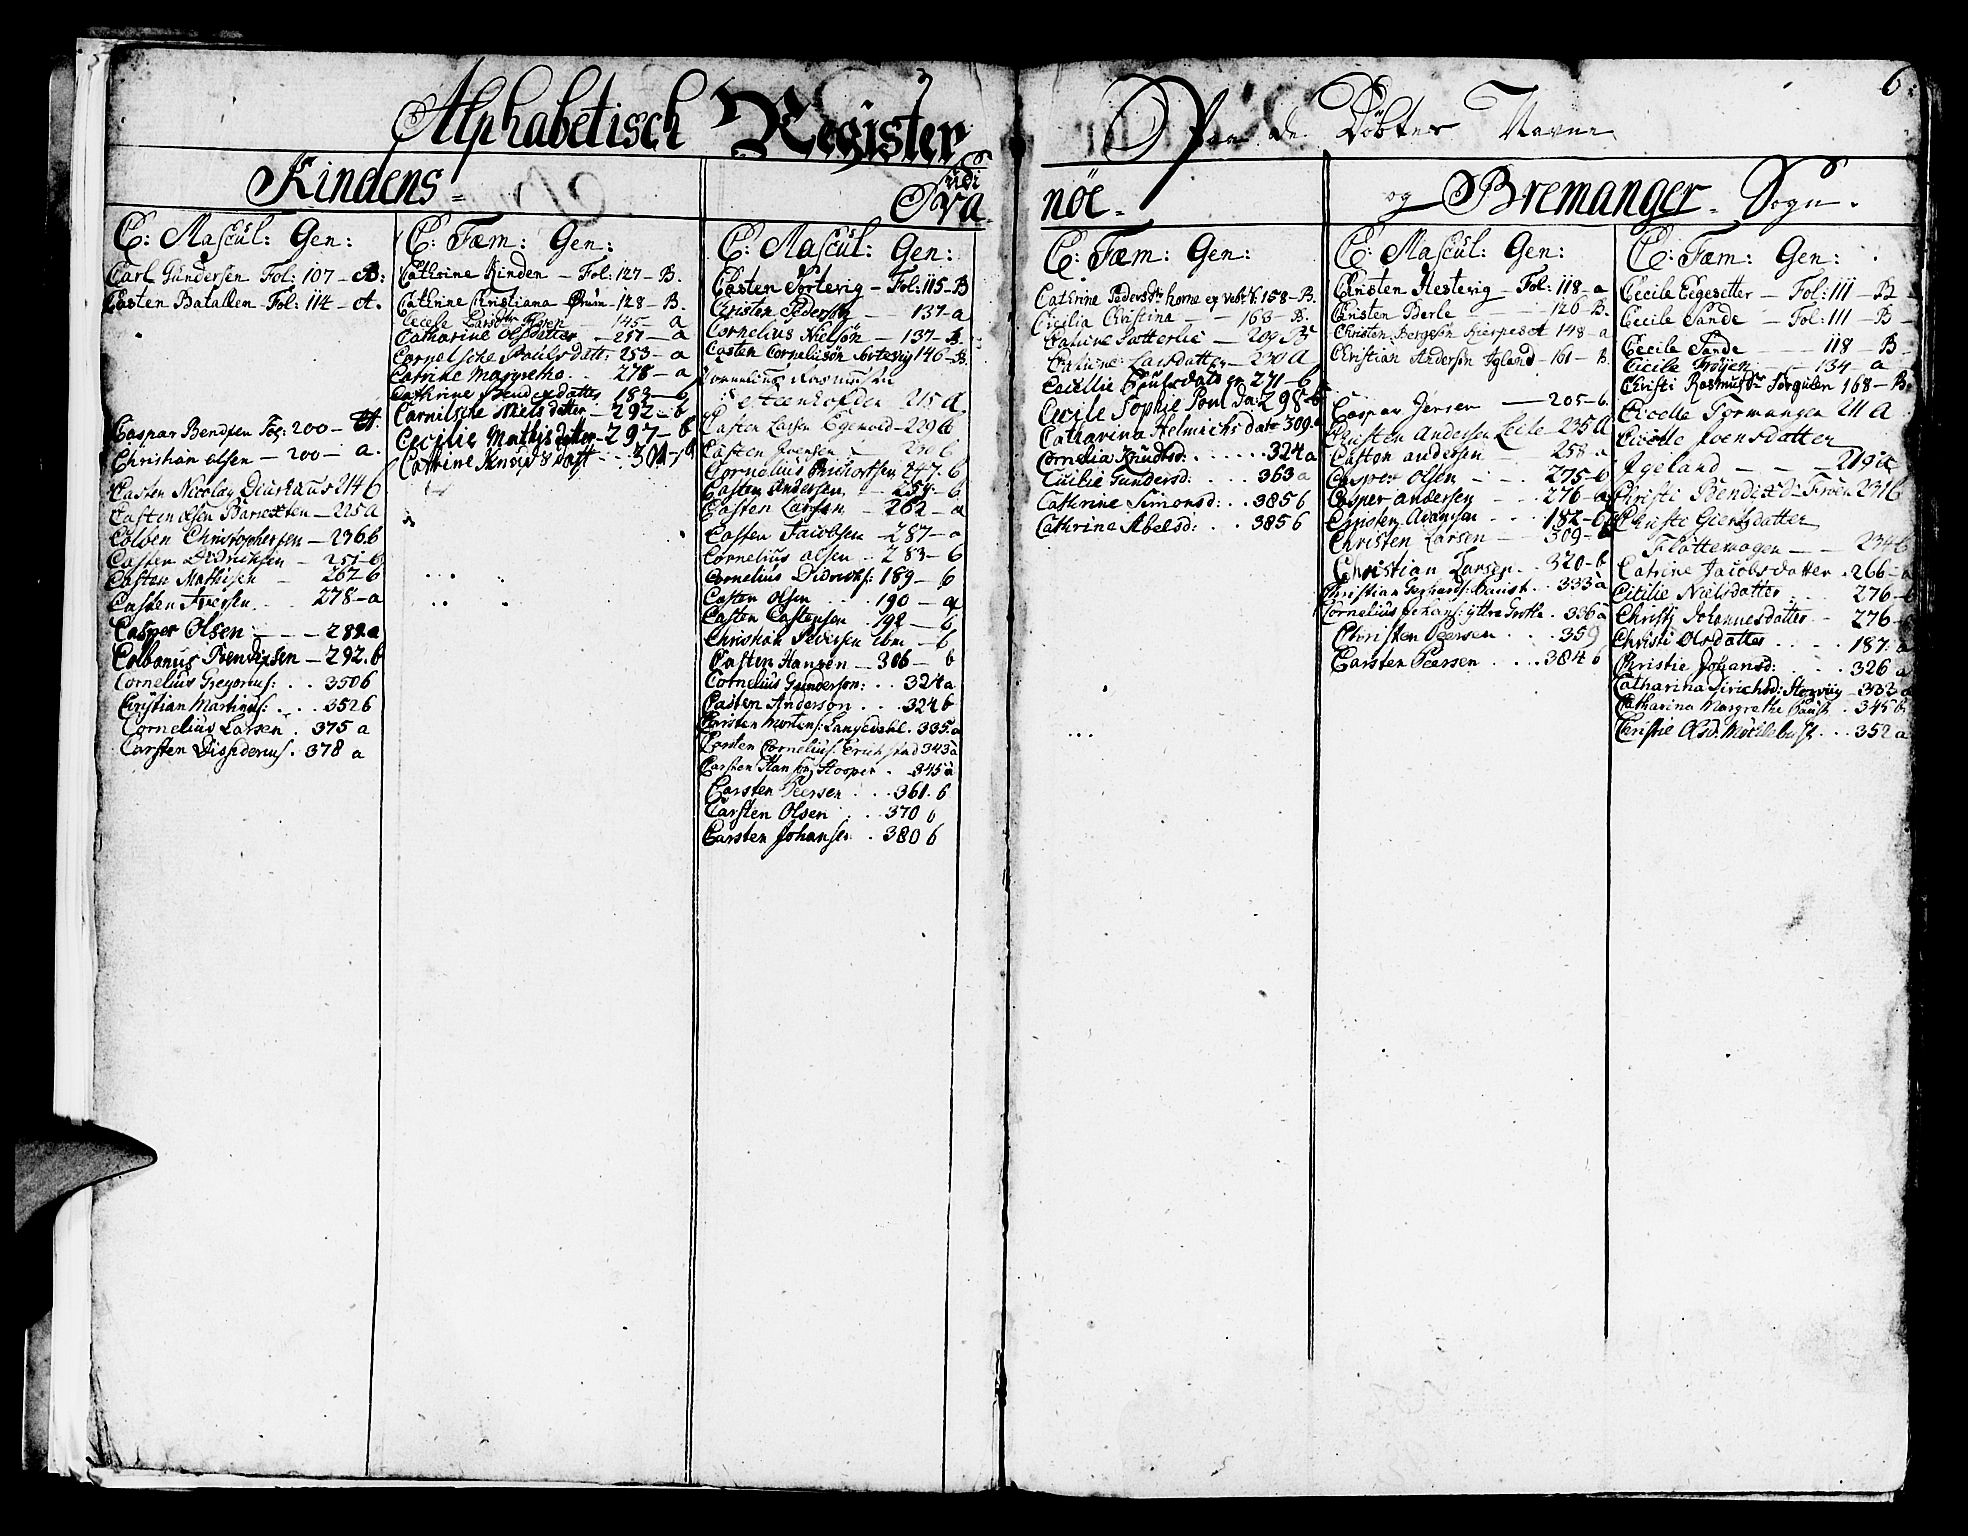 Alphabetisch Register
Paa de Döbtes Navne
6
Kindens
Svanöe
og Bremanger Sogn
C: Mascul: Gen:
Carl Gundersen Fol: 107 - B:
Casten Batalden Fol: 114 - A.
Caspar Bendsen Fol: 200 - A.
Christian olsen - 200 - a.
Casten Nicolay 214 b
Casten olsen - 225 a
Colben Christophersen - 236 b
Casten Didriksen - 251 - b
Casten Mathisen - 267 - b
Casten Iversen 278 - a
Casper Olsen - 282 a
Colbanus Bendixsen - 292. b
Cornelius Gregorius: 350 b
Christian Martinus: 352 b
Cornelius Larsen. 375 a
Carsten Disideriuf. 378 a
C: Fæm: Gen:
Cathrine Kinden - Fol: 127 - B.
Cathrine Christiana Bruun - 128 - B.
Cecele Larsdtr - 145 - a
Catharine Olsdatter - 257 - a
Cornelsche Poulsdatt: 253 - a
Catrine Margrethe 278 - a
Cathrine Bendexdatter 183 - b
Cornilsche Nielsdatter - 292 - b
Cecilie Mathisdatter - 297 - b
Cathrine Knuds datt 301 - a
C: Mascul: Gen:
Casten Sortevig - Fol: 115 - B
Christen Pedersen 137 - a
Cornelius Nielsön - 137 - B.
Casten Corneliusön Sortevig 146 - B.
Cornelius Rasmusen
215 a
Casten Larsen - 229 a
Casten Iversen - 230 b
Cornelius 247. b
Casten Andersen - 257 - b
Casten Larsen - 262 - a
Casten Jacobsen - 287 - a
Cornelius olsen - 283 - b
Cornelius Didrichs: 189 - b
Casten Olsen 190 - a
Casten Castensen 192 - b
Christian Siversen ibm - b
Casten Hansen - 306 - b
Cornelius Gunderson: 324 a
Casten Anderson 324 b
Carsten Mortens: Langedahl. 335. a
Carsten Cornelius: Erichstad 343 a
Carsten Hans 345 a
Carsten Peersen 361. b
Carsten Olsen 370 b
Carsten Johansen. 380 b
C: Fæm: Gen:
Cathrine Pedersdtr 158 - B.
Cicilia Christina - 163 - B.
Cathrine 209 B
Cathrine Larsdatter - 230 A
Cicillie Poulsdatter 271 - b
Cicile Sophie Poul Da: 298 - b
Catharina Helmichs datr 309. a
Cornelia Knudsd: 324 a
Cicilie Gundersd: 363 a
Cathrine Simonsd: 385 b
Cathrine Abelsd: 385 b
C: Mascul: Gen:
Christen Hestevig - Fol: 118 - a
Christen Berle 126 - B.
Christen 148 - a
Christian Andersön Igland - 161 - B.
Caspar Jensen - 205 - b.
Christen Andersen Leite 235 A
Caston andersen - 258 - a
Casper Olsen - 275 - b
Casper andersen - 276 - a
Christen Adamsen 182 - b
Christen Larsen - 309 - b
Christian Larsen 320 - b
Christian Gerhard: 333 a
Cornelius Johans: ÿttre Grotle 336 a
Christen Peersen 359
Carsten Peersen 384 b
C: Fæm: Gen:
Cecile Eigesetter - Fol: 111 - B
Cecile Sande - Fol: 111 - B
Cecile Sande 118 - B
Cicile Fröÿen - 134 - a
Christi Rasmusdtr 168 - B.
Cicelle Formangen 211 A
Cicelle Iversdatter
Igeland - 219 a
Christi Bendixd: 231 b
Christi Giertsdatter
Fløttemagen - 234 b
Catrine Jacobsdatter 266 - a
Cicilie Nielsdatter 276 - b
Christi Johannesdatter 276 - b
Christi Olsdatter 187 a
Christie Johansd: 326 a
Catharina Dirichsd: 333 a
Catharina Margrethe 345 b
Christie Olsd: 352 a